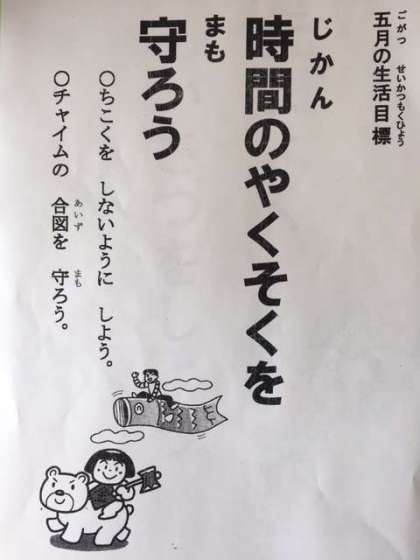 五月の生活目標
ごがつ せいかつもくひょう
時間のやくそくを
じかん
守ろう
まも
○ちこくを しないように しよう。
○チャイムの 合図を 守ろう。
あいず まも